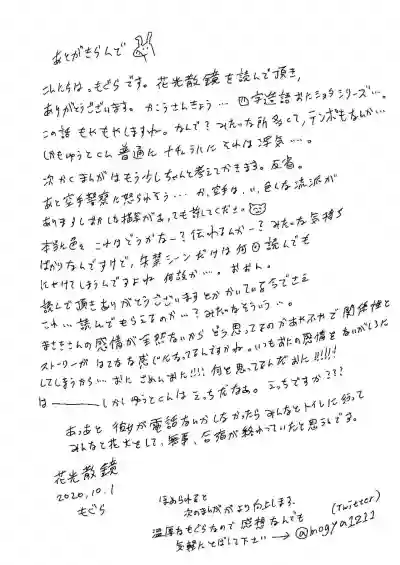 あとがきらんど
こんにちは。もぐらです。花光散鏡を読んで頂き、
ありがとうございます。かこうさんきょう…四字造語おにショタシリーズ…。
この話もやもやしますね。なんで?みたいな所多くて、テンポもなんか…
しかもゆうとくん普通にナチュラルに それは浮気…。
次かくまんがはもう少しちゃんと考えてかきます。反省。
あと空手警察に怒られそう…か、空手は、い、色んな流派が
ありますしおかしな描写があっても許してください。
本当に色々 これはどうかなー?伝わるんかー?みたいな気持ち
ばかりなんですけど、朱葉シーンだけは何回読んでも
にやけてしまうんですよね 何故か…。おわん。
読んで頂きありがとうございますとかかいている今でさえ
これ…読んでもらえるのか…?みたいなそういう…。
まさきさんの感情が全然ないから どう思ってるのかあやふやで関係性と
ストーリーが はてなな感じになってるんですかね。いつもおにの感情をないがしろに
してしまうから…おに ごめんおに!!!!何を思ってるんだおに!!!!!
は――しかしゆうとくんはえっちだなぁ。えっちですか???
あっあと 彼が電話ないかしなかったらみんなとトイレに行って
みんなと花火をして、無事、合宿が終わっていたと思うんです。
花光散鏡
2020.10.1
もぐら
ほめられると
次のまんががより向上します。
温厚なもぐらなので感想なんでも
気軽にとばして下さい → @mogya1211
(Twitter)